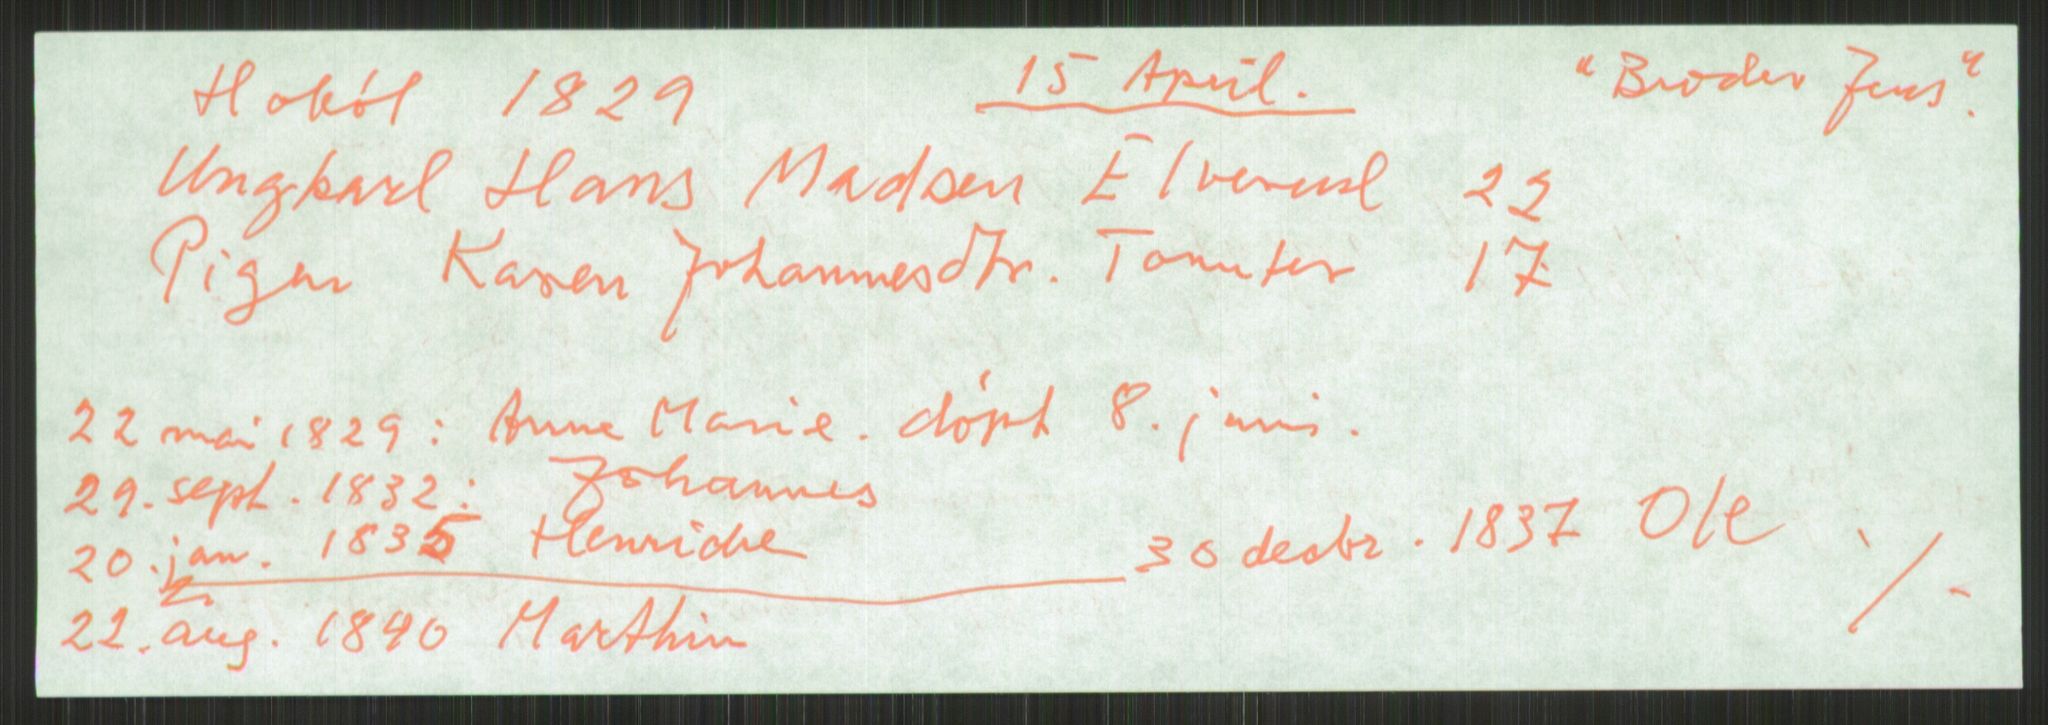 Hobøl 1829 15 April. "Broder Jens".
Ungkarl Hans Madsen Elverud 22
Pigen Karen Johannesdtr. Tomter 17
22 mai 1829: Anne Marie. døpt 8. juni.
29. sept. 1832: Johannes
20. jan. 1835 Henriche 30 decbr. 1837 Ole
22. aug. 1840 Marthin